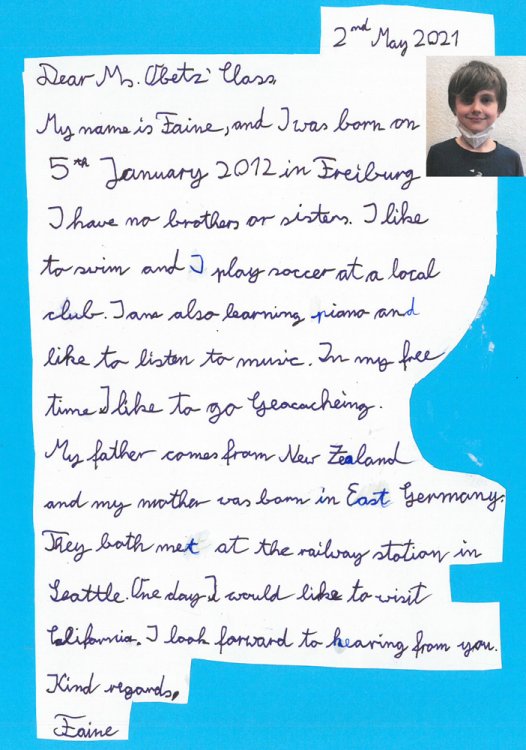 2nd May 2021
Dear Ms. Obetz' Class,
My name is Faine, and I was born on
5th January 2012 in Freiburg
I have no brothers or sisters. I like
to swim and I play soccer at a local
club. I am also learning piano and
like to listen to music. In my free
time I like to go Geocacheing.
My father comes from New Zealand
and my mother was born in East Germany.
They both met at the railway station in
Seattle. One day I would like to visit
California. I look forward to hearing from you.
Kind regards,
Faine